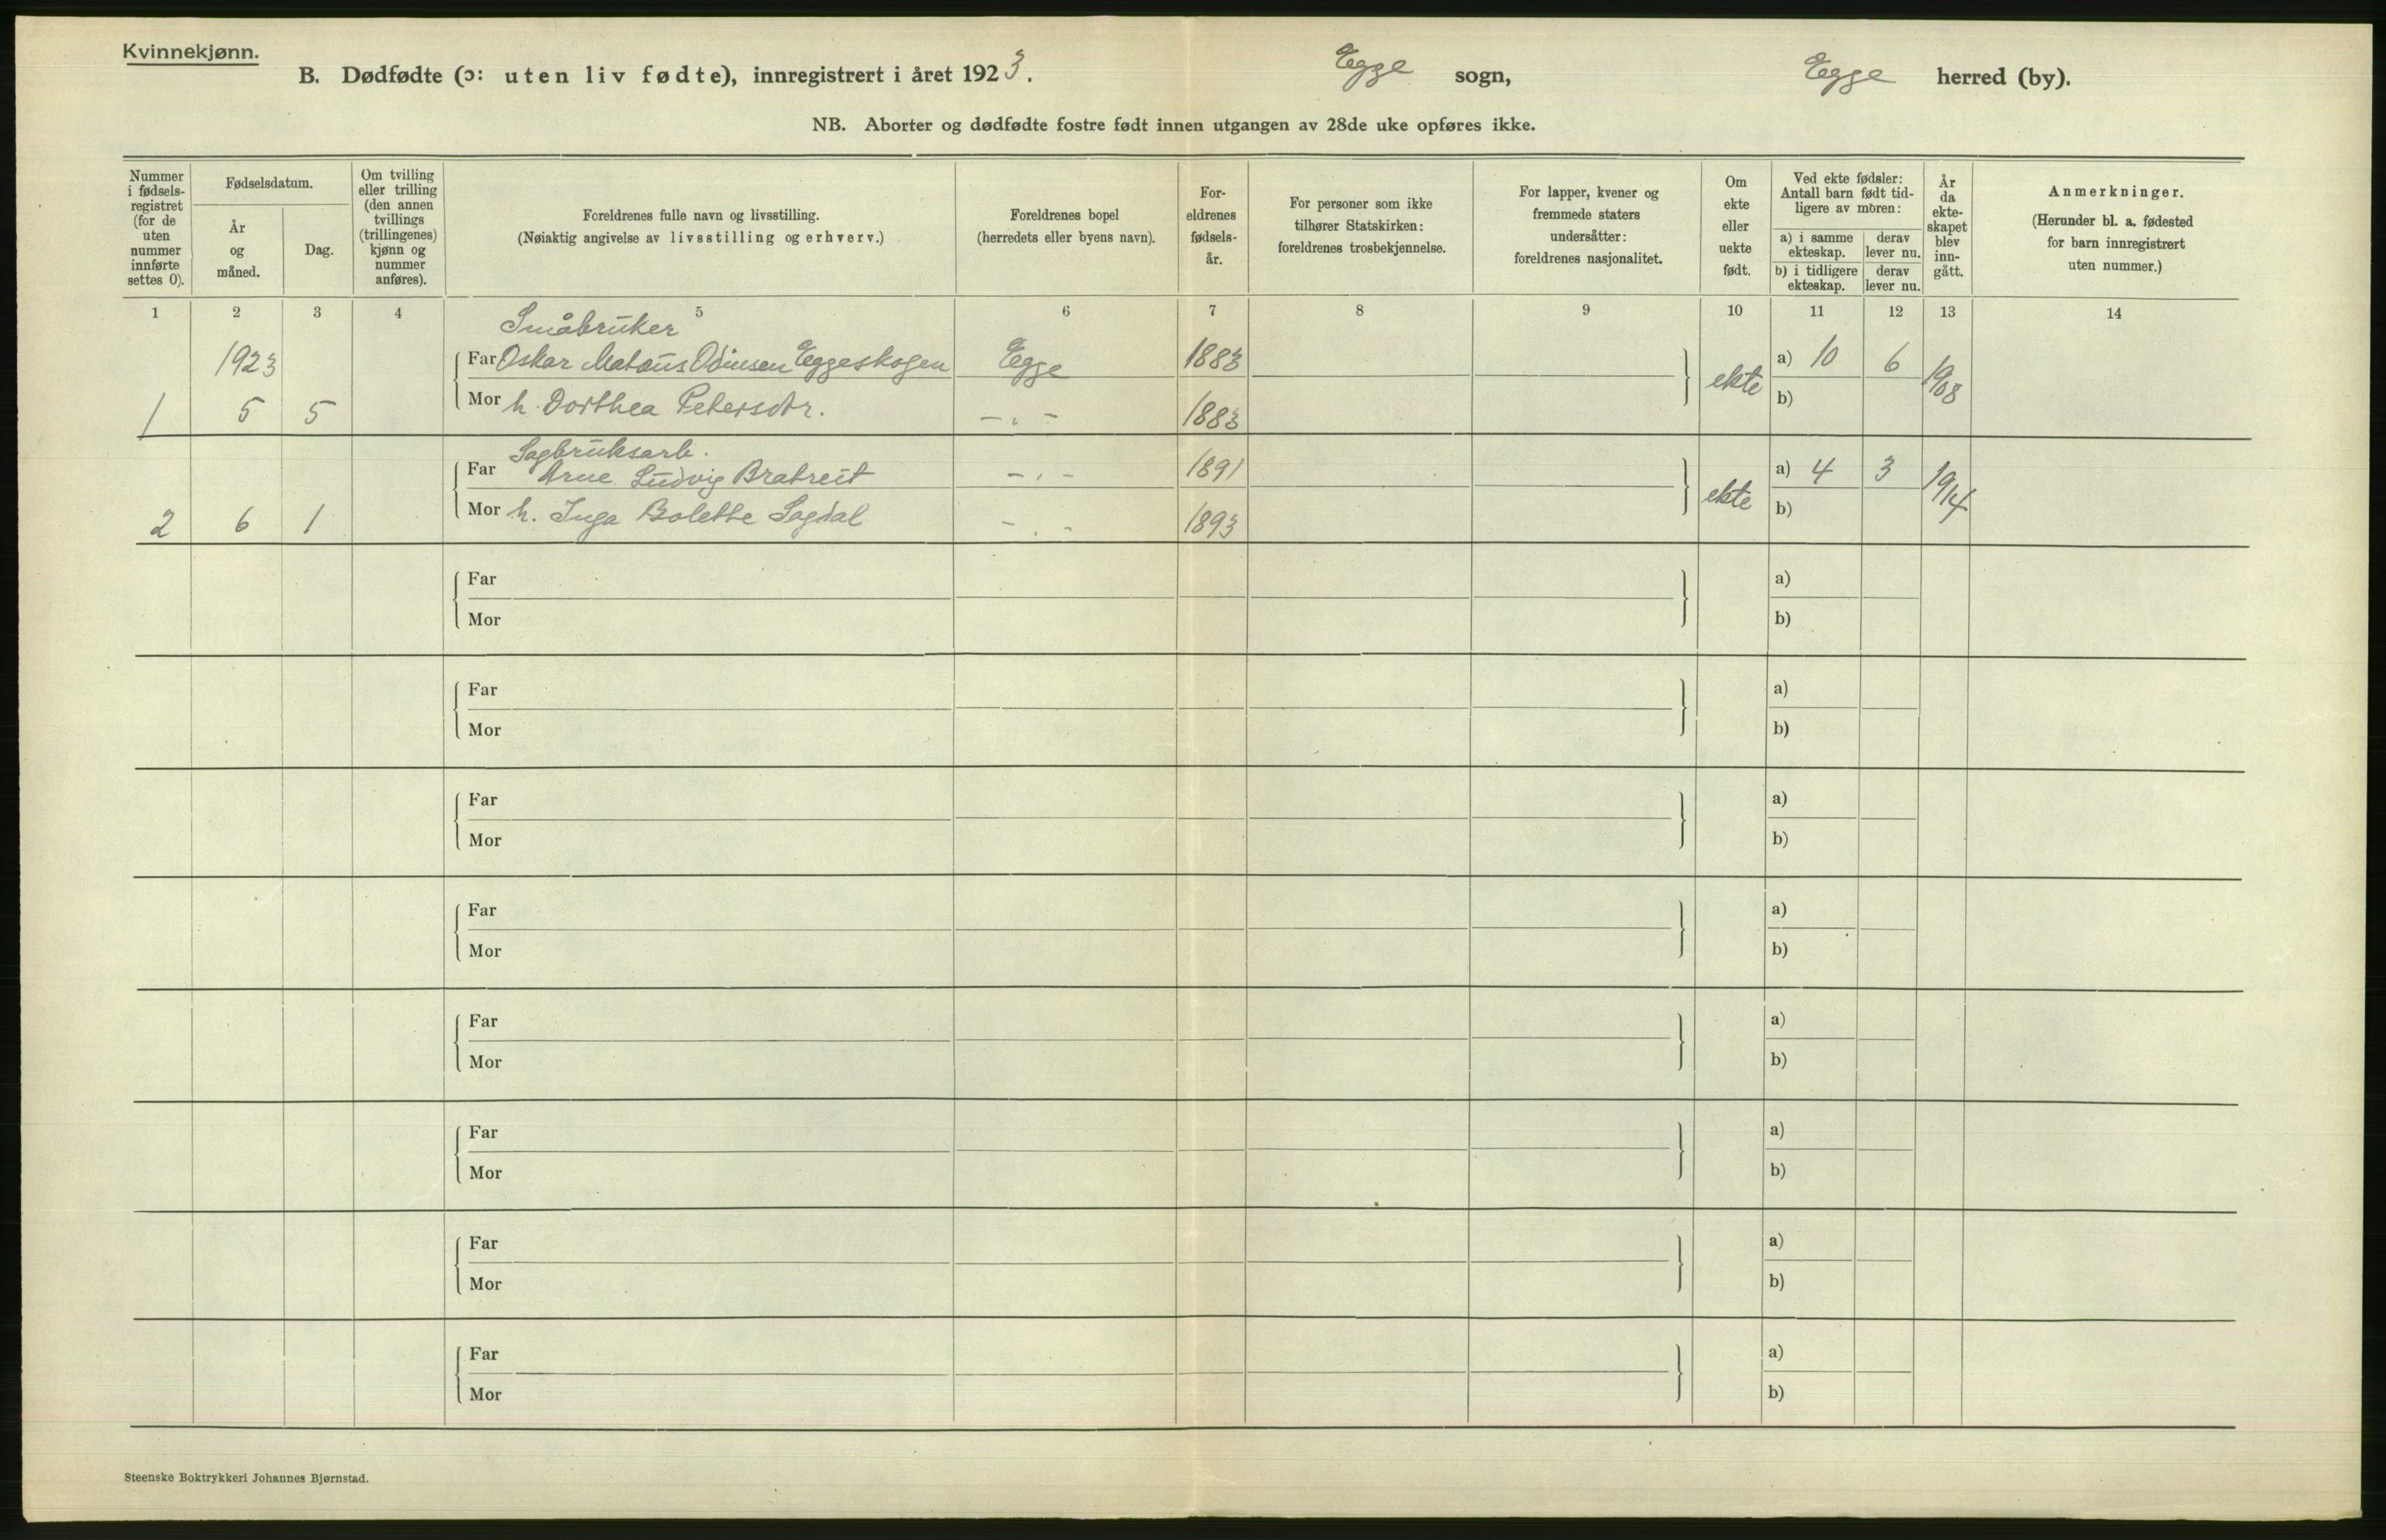 Kvinnekjønn.
B. Dødfødte (ɔ: uten liv fødte), innregistrert i året 1923.
Egge sogn,
Egge herred (by).
NB. Aborter og dødfødte fostre født innen utgangen av 28de uke opføres ikke.
Nummer i fødsels-registret (for de uten nummer innførte settes 0).
Fødselsdatum.
År og måned.
Dag.
Om tvilling eller trilling (den annen tvillings (trillingenes) kjønn og nummer anføres).
Foreldrenes fulle navn og livsstilling.
(Nøiaktig angivelse av livsstilling og erhverv.)
Foreldrenes bopel
(herredets eller byens navn).
For-eldrenes fødsels-år.
For personer som ikke tilhører Statskirken: foreldrenes trosbekjennelse.
For lapper, kvener og fremmede staters undersåtter: foreldrenes nasjonalitet.
Om ekte eller uekte født.
Ved ekte fødsler: Antall barn født tid-ligere av moren:
a) i samme ekteskap.
derav lever nu.
b) i tidligere ekteskap.
derav lever nu.
År da ekte-skapet blev inn-gått.
Anmerkninger.
(Herunder bl. a. fødested for barn innregistrert uten nummer.)
1 2 3 4 5 6 7 8 9 10 11 12 13 14
Småbruker
1923 Far Oskar Mataus Odinsen Eggeskogen Egge 1883 ekte a) 10 6 1908
1 5 5 Mor h. Dorthea Petersdtr. - . - 1883 b)
Sagbruksarb.
Far Arne Ludvig Bratreit - . - 1891 ekte a) 4 3 1914
2 6 1 Mor h. Inga Bolette Sagdal - . - 1893 b)
Far a)
Mor b)
Far a)
Mor b)
Far a)
Mor b)
Far a)
Mor b)
Far a)
Mor b)
Far a)
Mor b)
Far a)
Mor b)
Far a)
Mor b)
Steenske Boktrykkeri Johannes Bjørnstad.